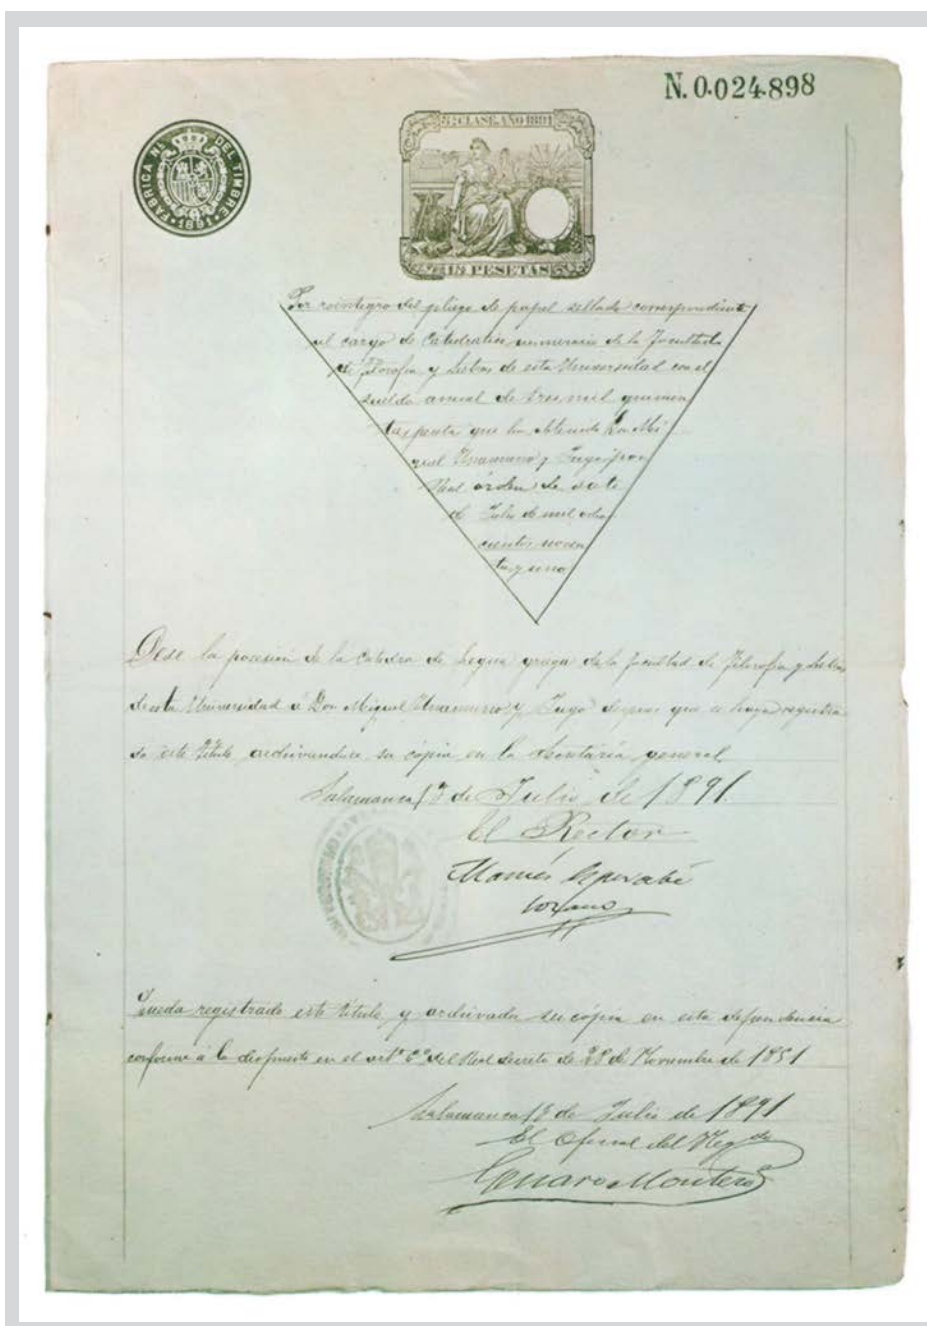 N. 0.024.898
FABRICA NL. DEL TIMBRE
1891
5ª CLASE. AÑO 1891
15 PESETAS
Por reintegro del pliego de papel sellado correspondiente
al cargo de Catedratico numerario de la Facultad
de Filosofia y Letras de esta Universidad con el
sueldo anual de tres mil quinien
tas peseta que ha obtenido Don Mi
guel Unamuno y Jugo por
Real órden de siete
de Julio de mil ocho
cientos noven
ta y uno
Dese la posesion de la Catedra de Legua griega de la facultad de Filosofia y Letras
de esta Universidad á Don Miguel Unamuno y Jugo despues que se haya registra
do este titulo archivandose su cópia en la Secretaría general
Salamanca 13 de Julio de 1891.
El Rector
Mamés Esperabé
Lozano
Queda registrado este titulo y archivada su cópia en esta dependencia
conforme á lo dispuesto en el artº 6º del Real decreto de 28 de Noviembre de 1851
Salamanca 13 de Julio de 1891
El Oficial del Negdo
Genaro Montero